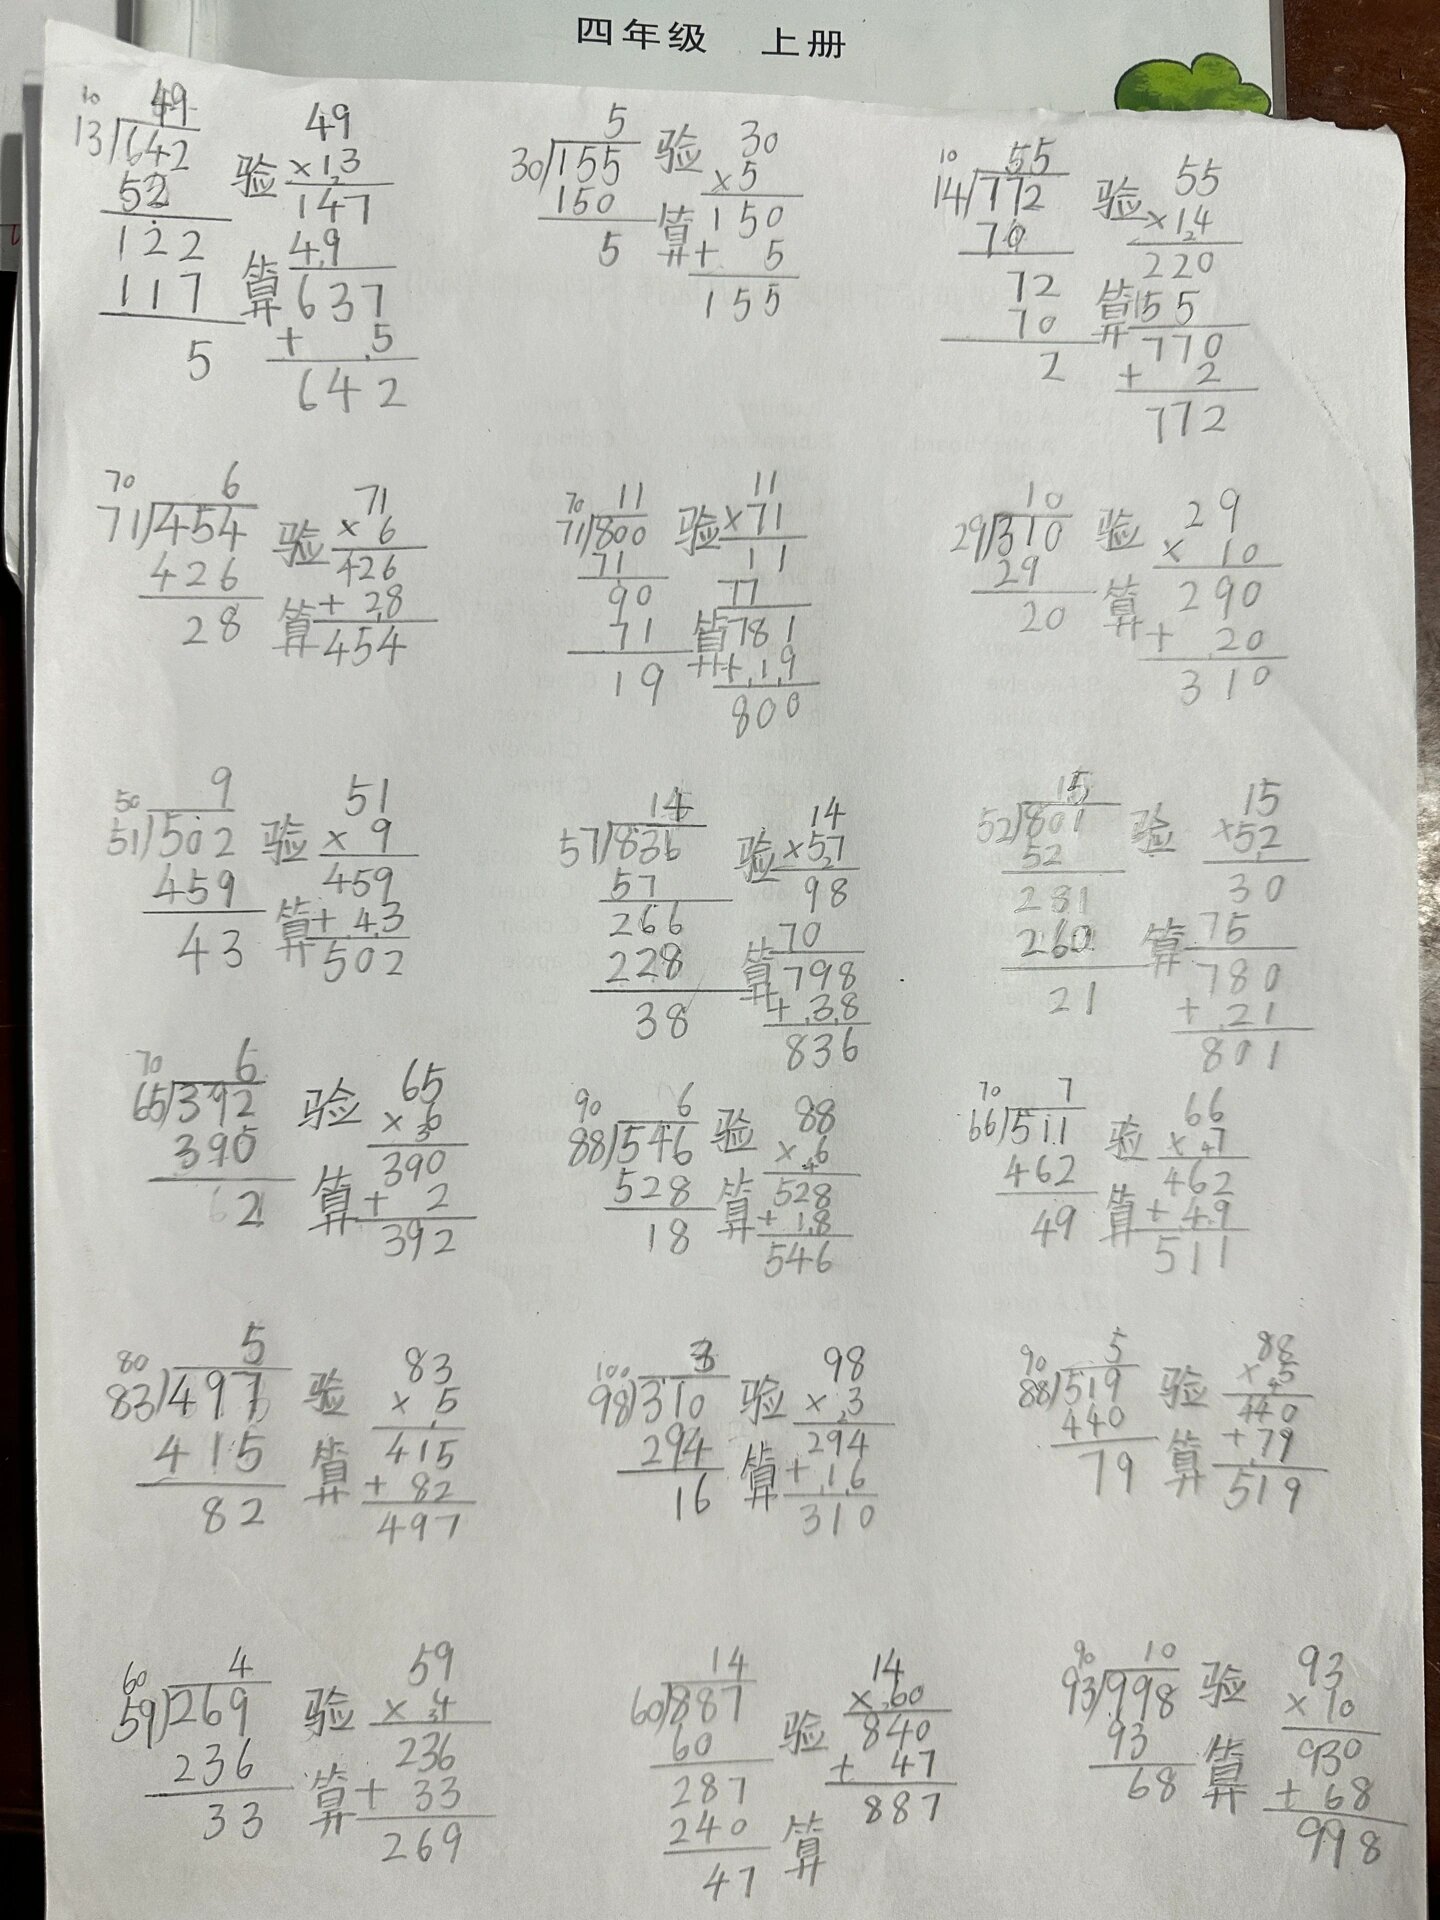 四年级 上册
10 49
13 642
52
122
117
5
验算
49
×13
147
49
637
+ 5
642
5
30 155
150
5
验算
30
×5
150
+ 5
155
10 55
14 772
70
72
70
2
验算
55
×14
220
55
770
+ 2
772
70 6
71 454
426
28
验算
71
× 6
426
+ 28
454
70 11
71 800
71
90
71
19
验算
11
×71
11
77
781
+ 19
800
10
29 310
29
20
验算
29
× 10
290
+ 20
310
50 9
51 502
459
43
验算
51
× 9
459
+ 43
502
14
57 836
57
266
228
38
验算
14
×57
98
70
798
+ 38
836
15
52 801
52
281
260
21
验算
15
×52
30
75
780
+ 21
801
70 6
65 392
390
2
验算
65
× 6
390
+ 2
392
90 6
88 546
528
18
验算
88
× 6
528
+ 18
546
70 7
66 511
462
49
验算
66
× 7
462
+ 49
511
80 5
83 497
415
82
验算
83
× 5
415
+ 82
497
100 3
98 310
294
16
验算
98
× 3
294
+ 16
310
90 5
88 519
440
79
验算
88
× 5
440
+ 79
519
60 4
59 269
236
33
验算
59
× 4
236
+ 33
269
14
60 887
60
287
240
47
验算
14
×60
840
+ 47
887
90 10
93 998
93
68
验算
93
× 10
930
+ 68
998